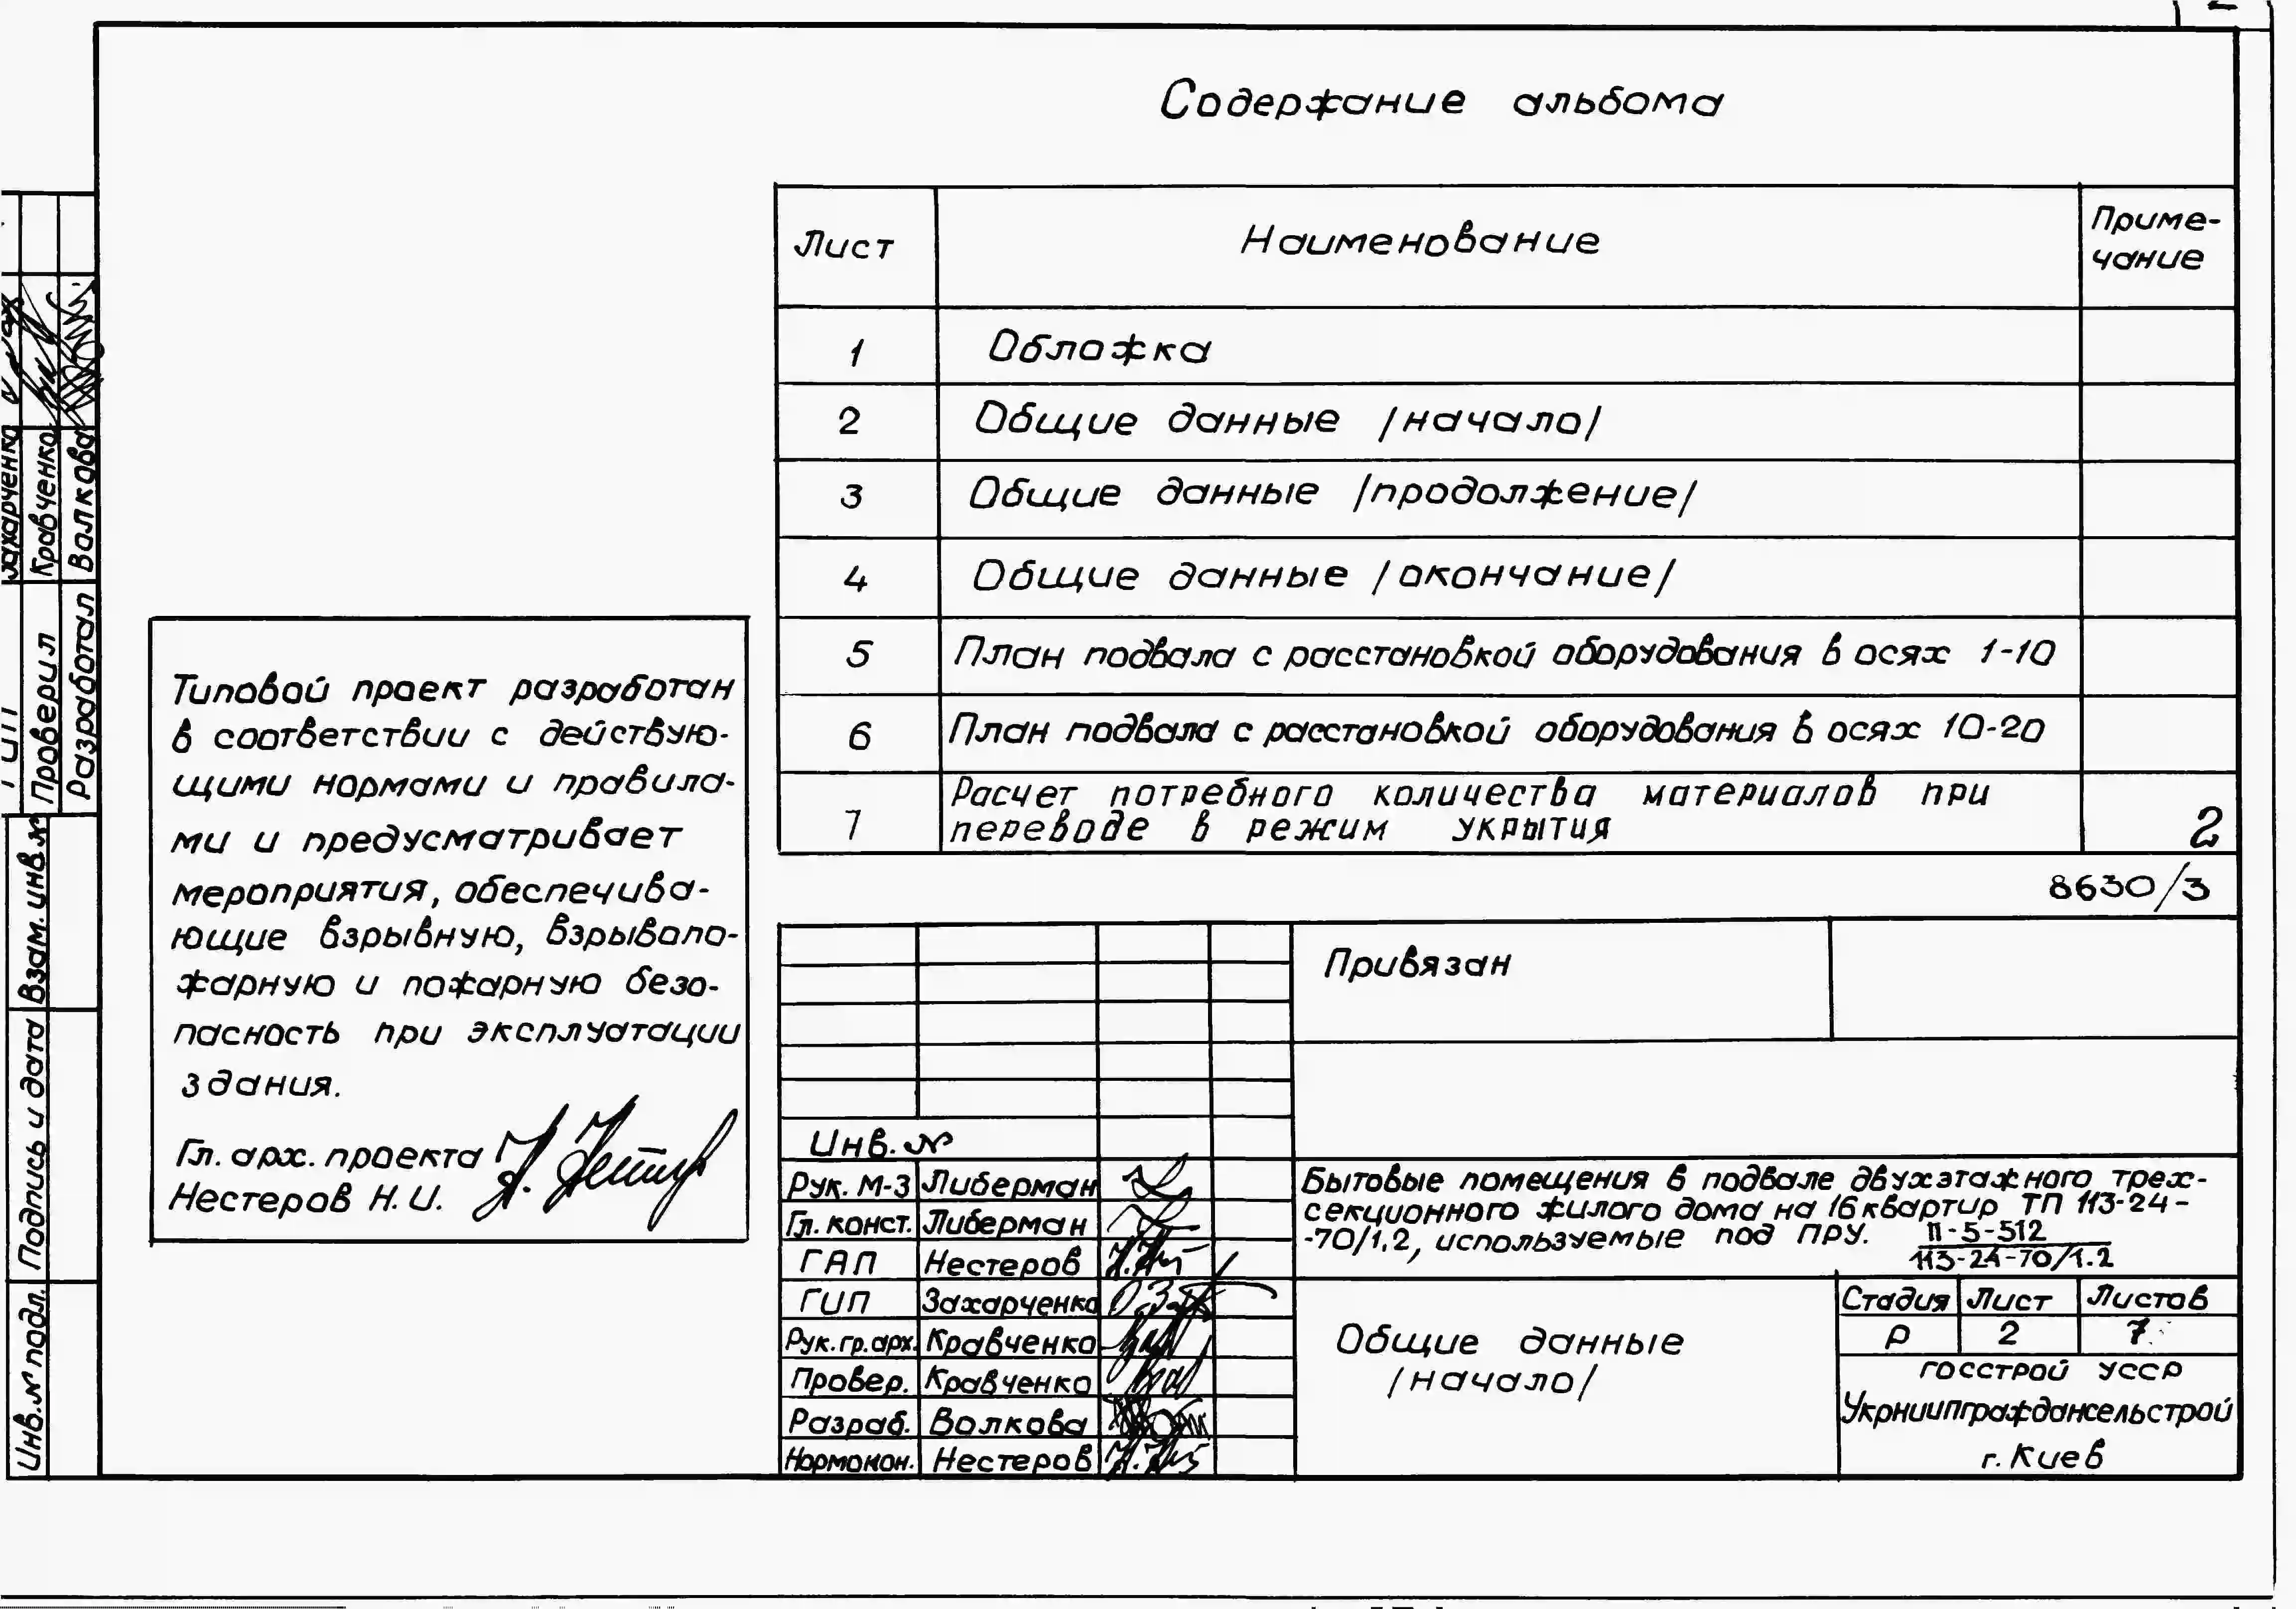 Содержание альбома
Лист Наименование Приме-
чание
1 Обложка
2 Общие данные /начало/
3 Общие данные /продолжение/
4 Общие данные /окончание/
5 План подвала с расстановкой оборудования в осях 1-10
6 План подвала с расстановкой оборудования в осях 10-20
7 Расчет потребного количества материалов при
переводе в режим укрытия
2
8630/3
Типовой проект разработан
в соответствии с действую-
щими нормами и правила-
ми и предусматривает
мероприятия, обеспечива-
ющие взрывную, взрывопо-
жарную и пожарную безо-
пасность при эксплуатации
здания.
Гл. арх. проекта
Нестеров Н.И.
Привязан
Инв. №
Рук. М-3 Либерман
Гл. конст. Либерман
ГАП Нестеров
ГИП Захарченко
Рук. гр. арх. Кравченко
Провер. Кравченко
Разраб. Волкова
Нормокон. Нестеров
Бытовые помещения в подвале двухэтажного трех-
секционного жилого дома на 16 квартир ТП 113-24-
-70/1.2, используемые под ПРУ. II-5-512
113-24-70/1.2
Общие данные
/начало/
Стадия Лист Листов
Р 2 7
ГОССТРОЙ УССР
Укрниипграждансельстрой
г. Киев
ГИП Захарченко
Проверил Кравченко
Разработал Волкова
Взам. инв. №
Подпись и дата
Инв. № подл.